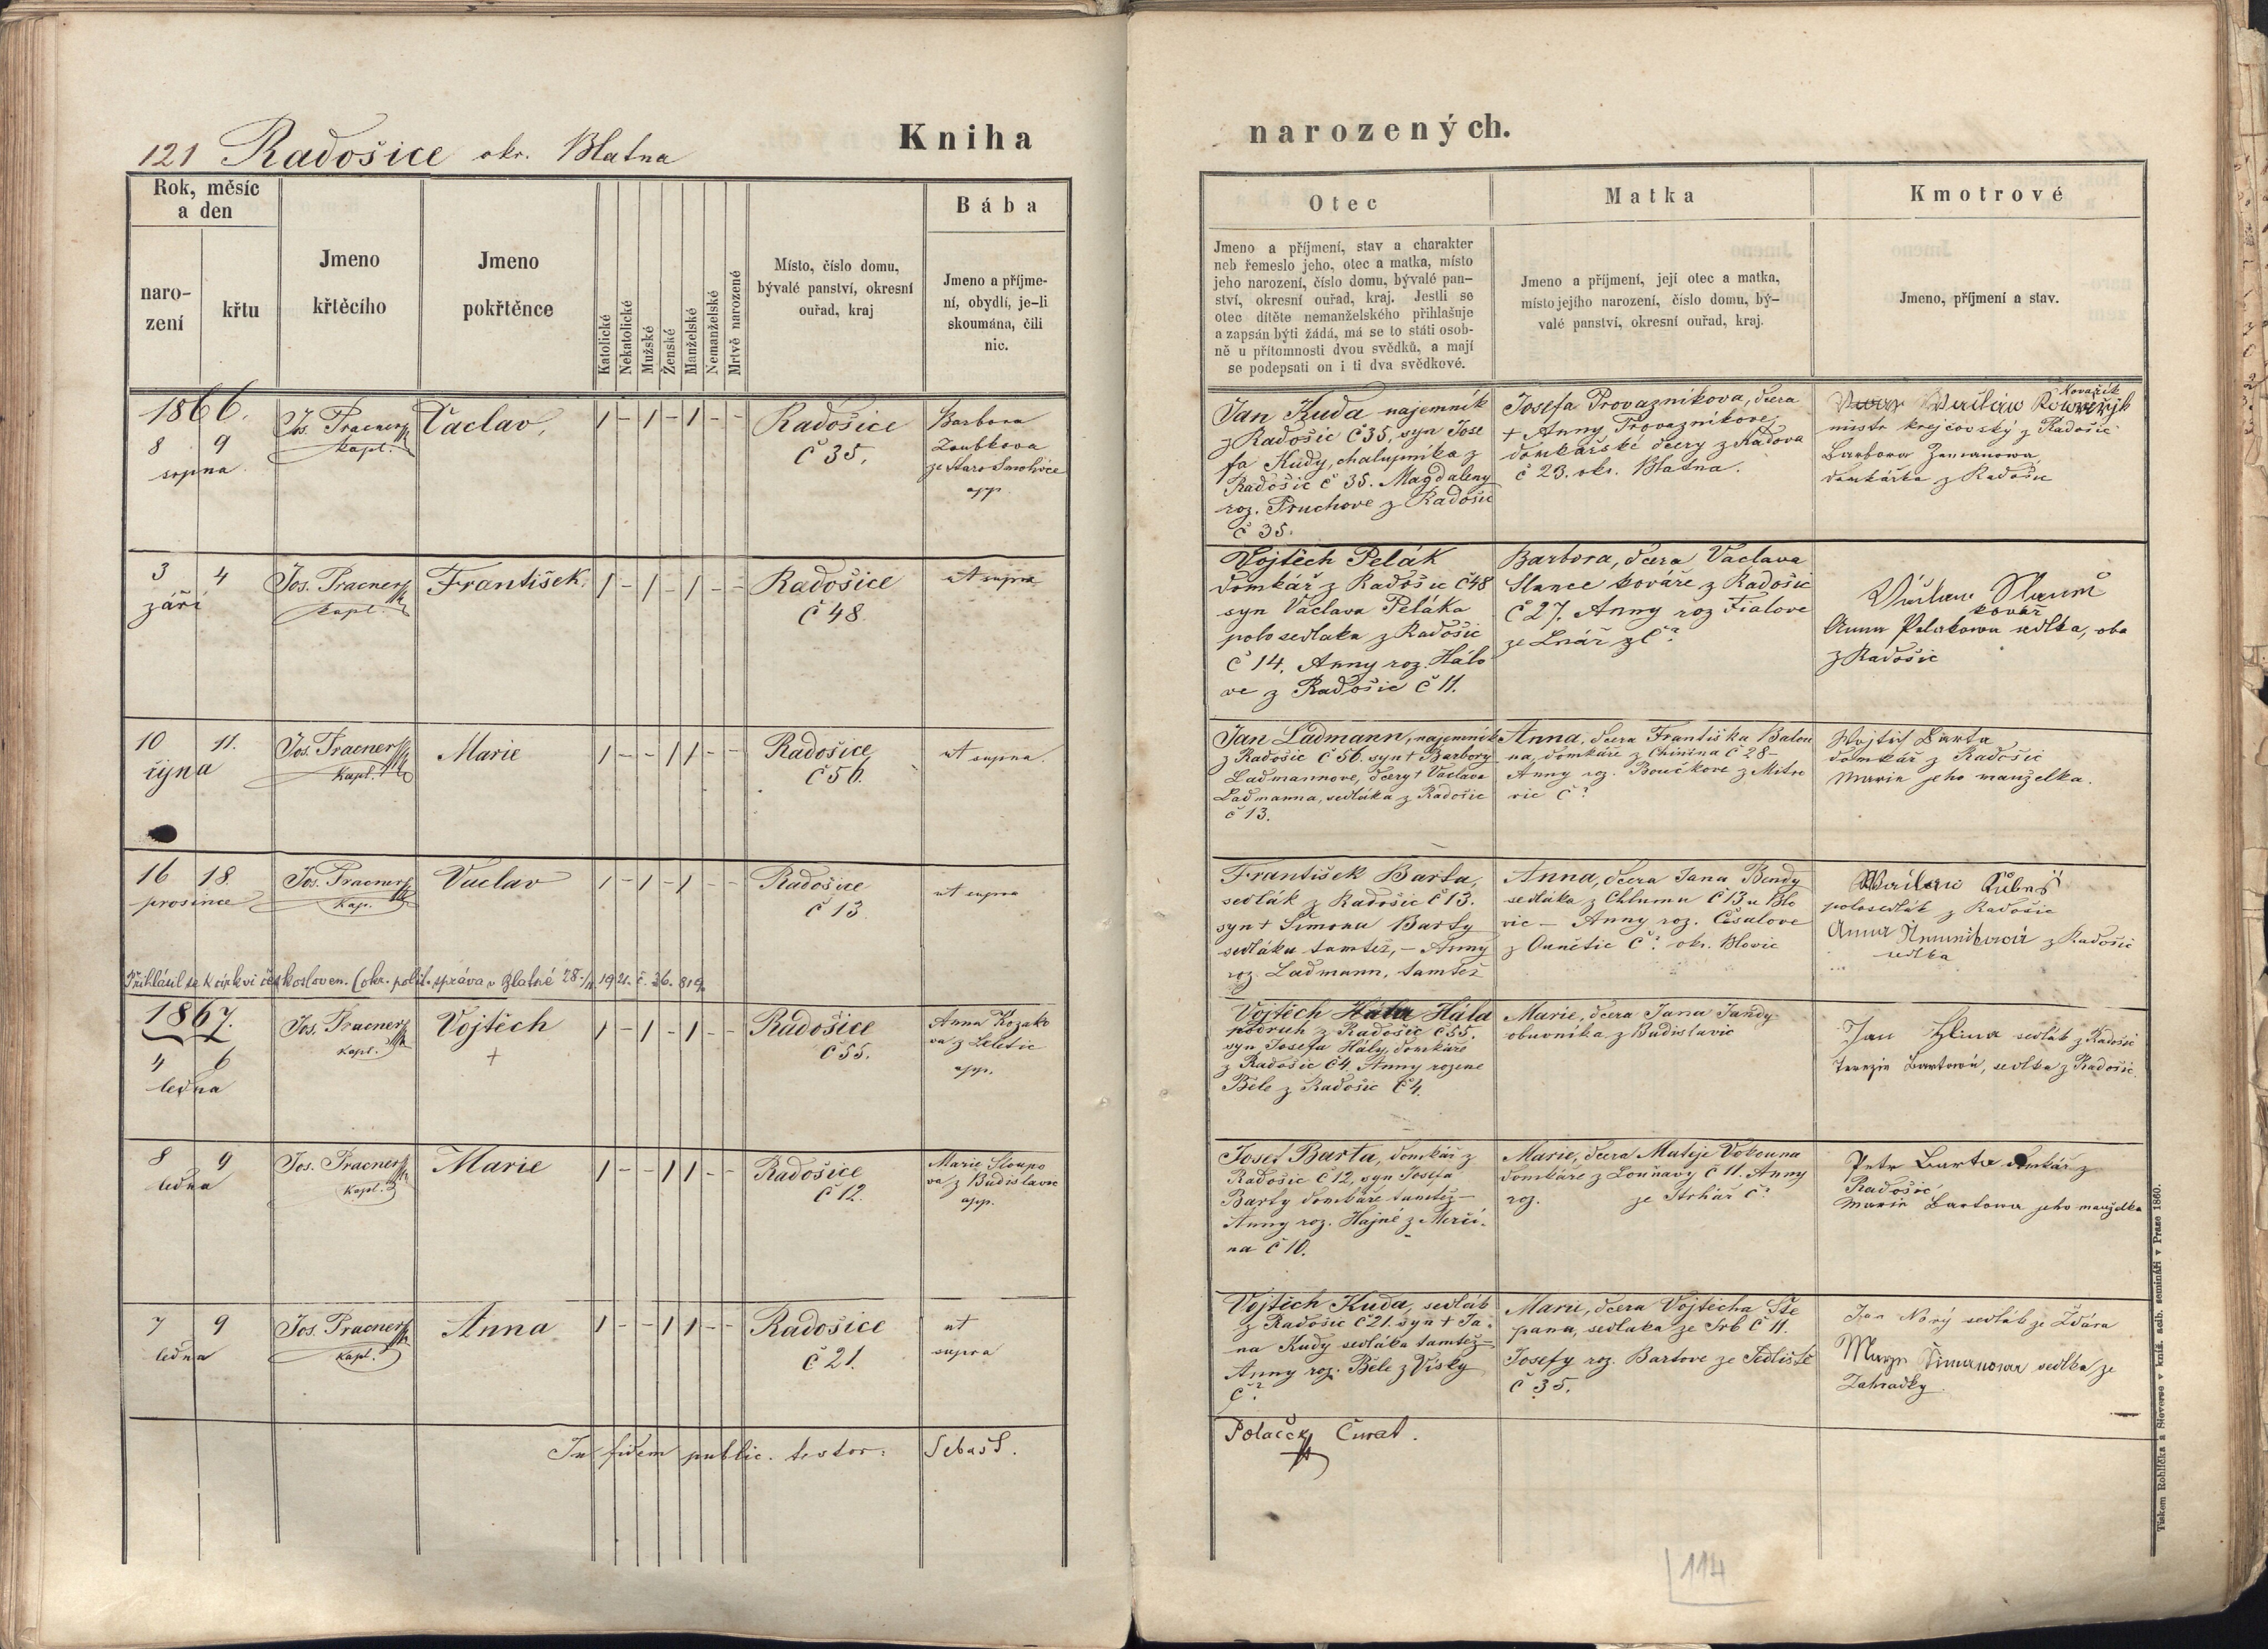 121 Radošice okr. Blatna
Kniha
Rok, měsíc
a den
naro-
zení
křtu
Jmeno
křtěcího
Jmeno
pokřtěnce
Katolické
Nekatolické
Mužské
Ženské
Manželské
Nemanželské
Mrtvě narozené
Místo, číslo domu,
bývalé panství, okresní
ouřad, kraj
Bába
Jmeno a příjme-
ní, obydlí, je-li
skoumána, čili
nic.
1866.
8 9
srpna
Jos. Pracner
kapl.
Vaclav,
1 - 1 - 1 - -
Radošice
č 35.
Barbora
Zoubkova
ze Staro Smolivce
app.
3 4
září
Jos. Pracner
kapl.
František.
1 - 1 - 1 - -
Radošice
č 48.
ut supra
10 11.
října
Jos. Pracner
Kapl.
Marie
1 - - 1 1 - -
Radošice
č 56.
ut supra.
16 18.
prosince
Jos. Pracner
Kap.
Vaclav
1 - 1 - 1 - -
Radošice
č 13.
ut supra
Přihlásil se k církvi českosloven. (okr. polit. správa v Blatné 28. 1921. č. 36.819.
1867.
4 6
ledna
Jos. Pracner
Kapl.
Vojtěch
+
1 - 1 - 1 - -
Radošice
č 55.
Anna Kozako
va z Zeletic
app.
8 9
ledna
Jos. Pracner
Kapl.
Marie
1 - - 1 1 - -
Radošice
č 12.
Marie Sloupo
va z Budislavic
app.
7 9
ledna
Jos. Pracner
Kapl.
Anna
1 - - 1 1 - -
Radošice
č 21.
ut
supra
In fidem public. testor:
Sebast.
narozených.
Otec
Jmeno a příjmení, stav a charakter
neb řemeslo jeho, otec a matka, místo
jeho narození, číslo domu, bývalé pan-
ství, okresní ouřad, kraj. Jestli se
otec dítěte nemanželského přihlašuje
a zapsán býti žádá, má se to státi osob-
ně u přítomnosti dvou svědků, a mají
se podepsati on i ti dva svědkové.
Matka
Jmeno a příjmení, její otec a matka,
místo jejího narození, číslo domu, bý-
valé panství, okresní ouřad, kraj.
Kmotrové
Jmeno, příjmení a stav.
Jan Kuda najemník
z Radošic č 35, syn Jose
fa Kudy, chalupníka z
Radošic č 35. Magdaleny
roz. Pruchove z Radošic
č 35.
Josefa Provazníkova, dcera
+ Anny Provazníkove,
domkářské dcery z Kadova
č 23. okr. Blatna.
Kovařík
Vaclav
mistr krejčovský z Radošic
Barbora Zemanowa
domkářka z Radošic
Vojtěch Pelák
domkář z Radošic č 48
syn Vaclava Peláka
polosedlaka z Radošic
č 14. Anny roz. Hálo
ve z Radošic č 11.
Barbora, dcera Vaclava
Slance kováře z Radošic
č 27. Anny roz Fialove
ze Lnář č?
Václav
kovář
Anna Pelakowa sedlka, oba
z Radošic
Jan Ladmann, najemník
z Radošic č 56. syn + Barbory
Ladmannove, dcery + Vaclava
Ladmanna, sedláka z Radošic
č 13.
Anna, dcera Františka Balou
na, domkáře z Chinina č 28 -
Anny roz. Boučkove z Mitro
vic č?
Wojtěch Barta
domkář z Radošic
Marie jeho manželka.
František Barta,
sedlák z Radošic č 13.
syn + Šimona Barty
sedláka tamtéž, - Anny
roz. Ladmann, tamtéž
Anna, dcera Jana Bendy
sedláka z Chlumu č 13 u Blo
vic - Anny roz. Česalove
z Ounětic č? okr. Blovic
polosedlák z Radošic
Anna z Radošic
sedlka
Vojtěch Hála
podruh z Radošic č 55.
syn Josefa Hály, domkáře
z Radošic č 4. Anny rozene
Běle z Radošic č 4.
Marie, dcera Jana Jandy
obuvníka z Budislavic
Jan Hlina sedlák z Radošic
Terezie Bartowá, sedlka z Radošic.
Josef Barta, domkář z
Radošic č 12, syn Josefa
Barty domkáře tamtéž -
Anny roz. Hajné z Mečí-
na č 10.
Marie, dcera Matěje Vokouna
domkáře z Louňavy č 11. Anny
roz. ze Strhář č?
Petr Barta domkář z
Radošic
Marie Bartowa jeho manželka
Vojtěch Kuda, sedlák
z Radošic č 21. syn + Ja-
na Kudy sedláka tamtéž -
Anny roz. Běle z Vísky
č?
Marie, dcera Vojtěcha Ště
pana, sedlaka ze Srb č 11.
Josefy roz. Bartove ze Sedliště
č 35.
Jan Nový sedlák ze Žďára
Marye Šimanowa sedlka ze
Zahradky.
Polaček Curat.
114
Tiskem Rohlíčka a Sieverse v kníž. arcib. semináři v Praze 1860.